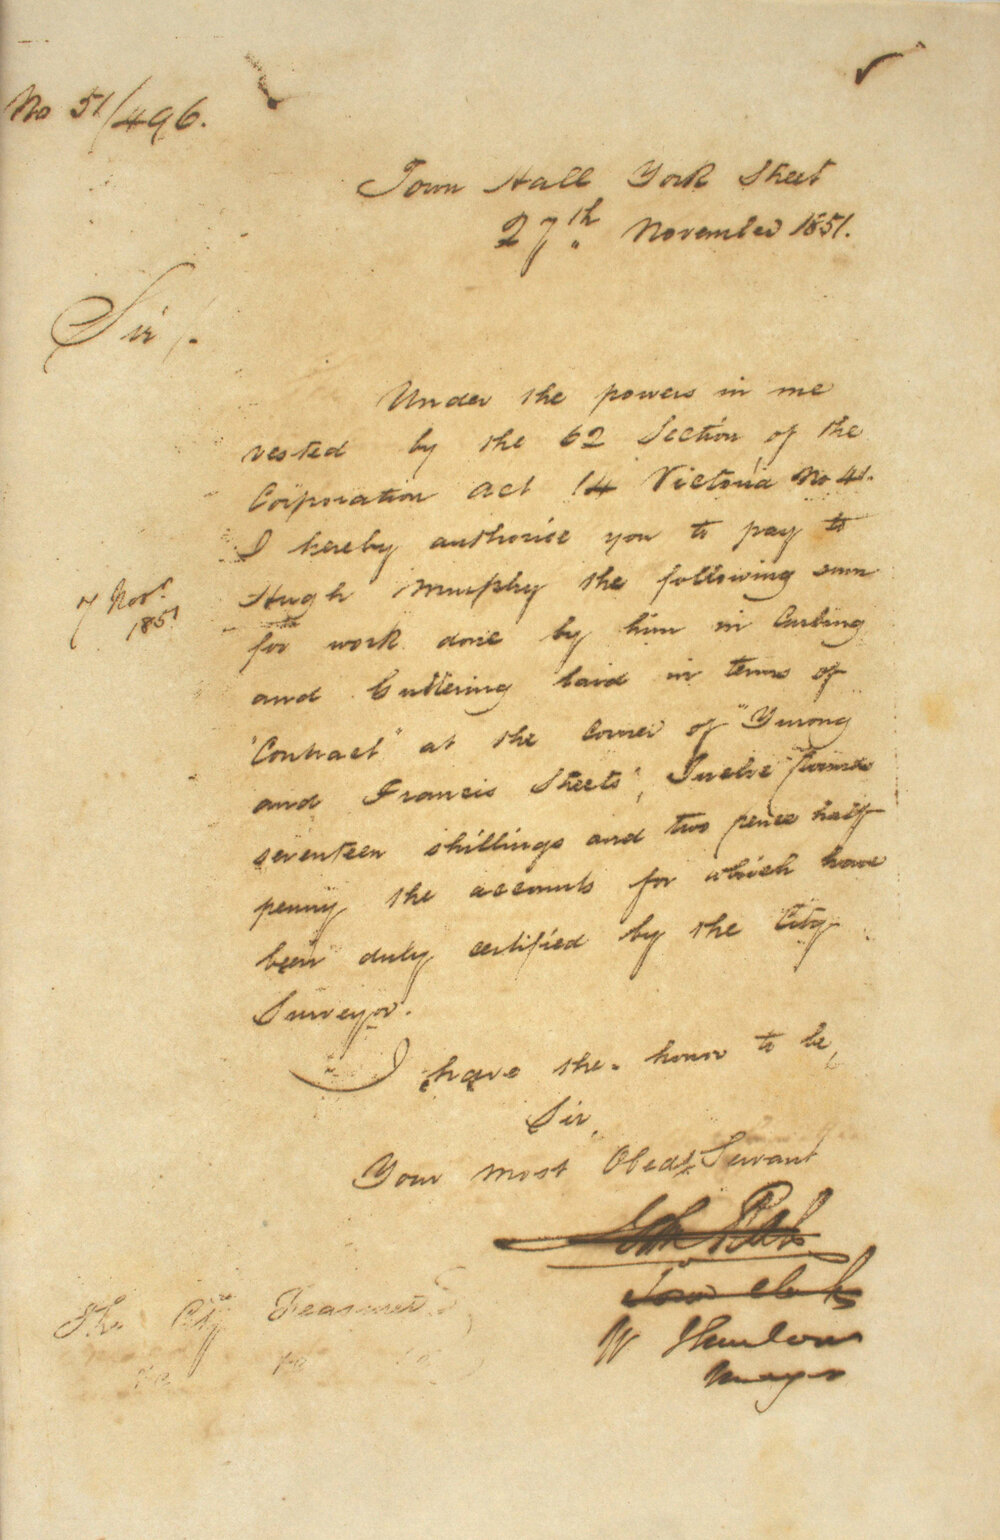 No 51/496.
Town Hall York Street
27th November 1851.
Sir/.
Under the powers in me
vested by the 62 Section, of the
Corporation Act 14 Victoria No 41.
I hereby authorise you to pay to
Hugh Murphy the following sum
7 Novr.
1851
for work done by him in Curbing
and Guttering laid in terms of
"Contract" at the corner of "Yurong
and Francis Streets", Twelve pounds
seventeen shillings and two pence half
penny the accounts for which have
been duly certified by the City
Surveyor.
I have the honor to be,
Sir,
Your most Obedt Servant
Town Clerk
W Thurlow
Mayor
The City Treasurer